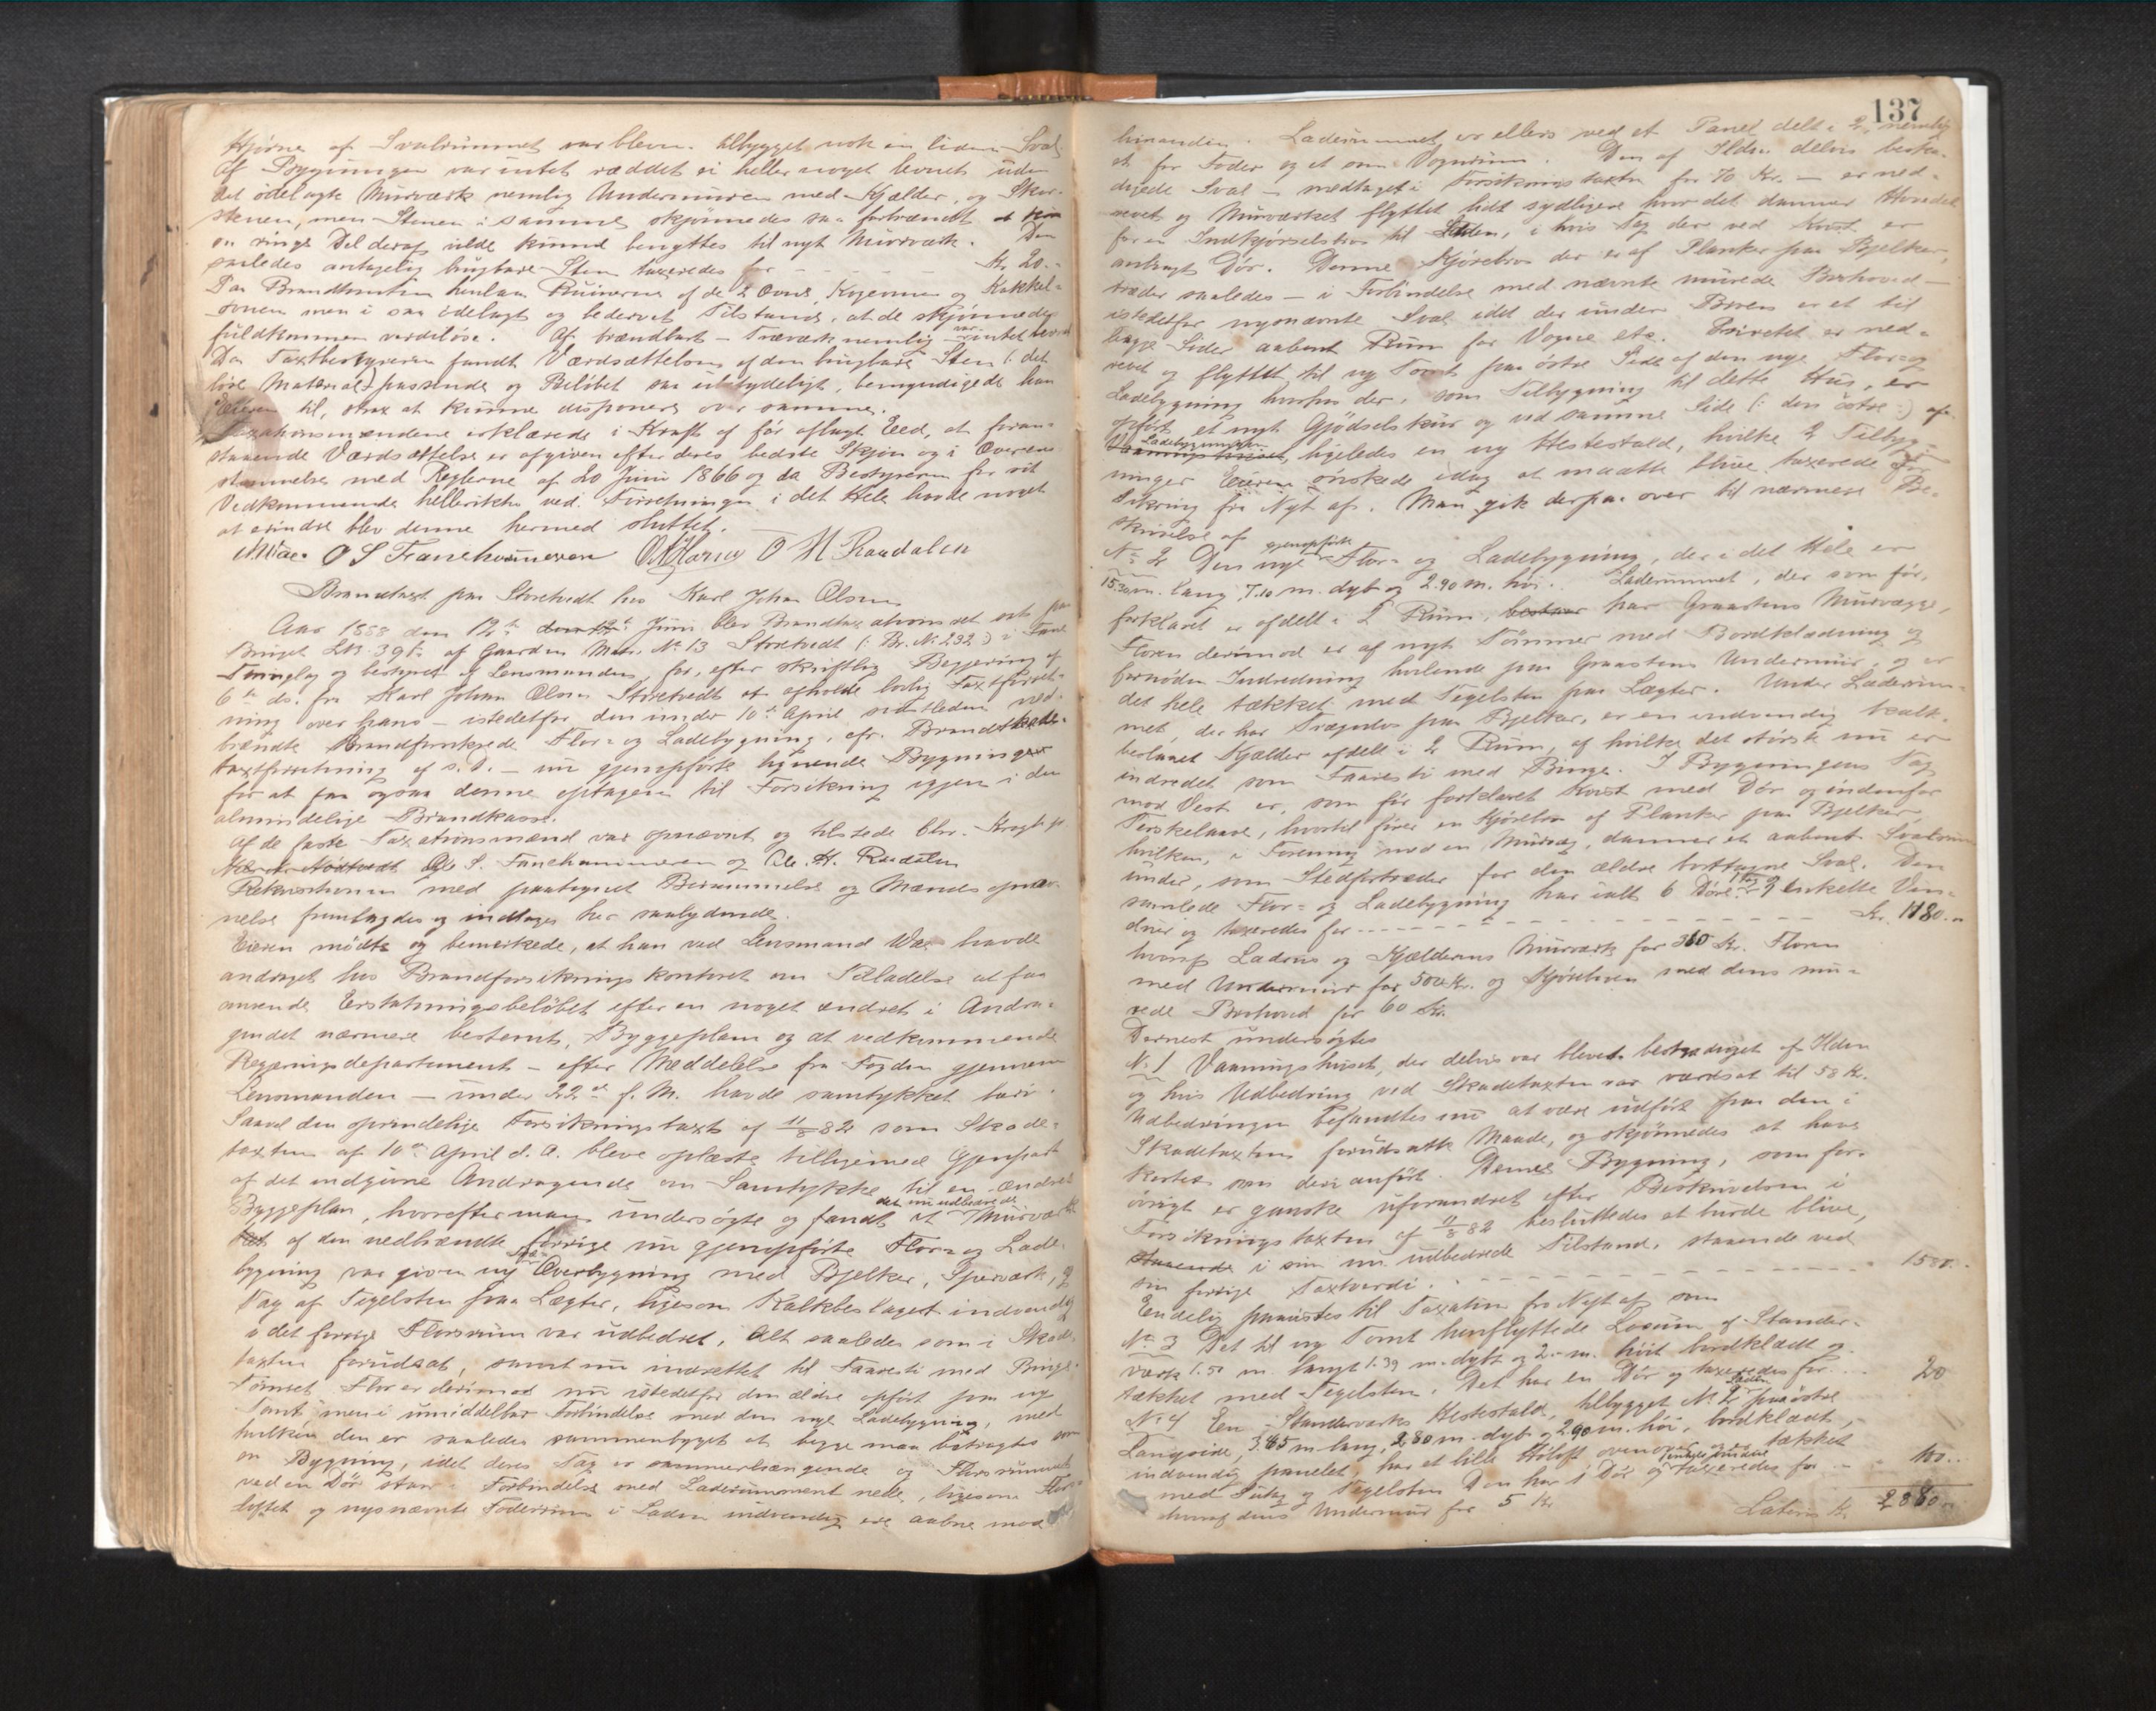 Hjørne af Svalrummet var bleven tilbygget nok en liden Sval
Af Bygningen var intet reddet ei heller noget levnet uden
det ødelagte Murværk nemlig Undermuren med Kjælder, og Skor-
stenen, men Stenen i samme skjønnedes saa forbrændt at kun
en ringe Del deraf vilde kunne benyttes til nyt Murværk. Den
saaledes antagelig brugbare Sten taxeredes for - - - Kr. 20.-
Paa Brandtomten henlaa Ruinerne af de 2 Ovne, Kogeovnen og Kakkel-
ovnen men i saa ødelagt og bedervet Tilstand, at de skjønnedes
fuldkommen værdiløse. Af brændbart - Træværk nemlig - var intet levnet
Da Taxtbestyreren fandt Værdsættelsen af den brugbare Sten (: det
løse Materiale) passende og Beløbet saa ubetydeligt, bemyndigede han
Eieren til, strax at kunne disponere over samme.
Taxationsmændene erklærede i Kraft af før aflagt Eed, at foran-
staaende Værdsættelse er afgiven efter deres bedste Skjøn og i Overens-
stemmelse med Reglerne af 20 Juni 1866 og da Bestyreren for sit
Vedkommende hellerikke ved Forretningen i det Hele havde noget
at erindre blev denne hermed sluttet.
O S Fanehammeren O H Raadalen
Brandtaxt paa Storetvedt hos Karl Johan Olsen
Aar 1888 den 12te Juni blev Brandtaxationsret sat paa
Bruget af Gaarden Matr. No 13 Storetvedt (: Br. No 292 :) i Fane
Thinglag og bestyret af Lensmanden for, efter skriftlig Begjæring af
6te ds. fra Karl Johan Olsen Storetvedt at afholde lovlig Taxtforret-
ning over hans - istedetfor den under 10de April sidstleden ned-
brændte brandforsikrede Flor- og Ladebygning, cfr. Brandskade-
taxtforretning af s. D. - nu gjenopførte lignende Bygninger
for at faa ogsaa denne optagen til Forsikring igjen i den
almindelige Brandkasse.
Af de faste Taxationsmænd var opnævnt og tilstede
Ole S. Fanehammeren og Ole H. Raadalen
Rekvisitionen med paategnet Berammelse og Mænds opnæv-
nelse fremlagdes og indtages her saalydende.
Eieren mødte og bemærkede, at han ved Lensmand Wae havde
andraget hos Brandforsikringskontoret om Tilladelse at faa
anvende Erstatningsbeløbet efter en noget ændret i Andra-
gendet nærmere bestemt, Byggeplan og at vedkommende
Regjeringsdepartement - efter Meddelelse fra Fogden gjennem
Lensmanden - under 22de f. M. havde samtykket heri.
Saavel den oprindelige Forsikringstaxt af 11/8 82 som Skade-
taxten af 10de April d. A. bleve oplæste tilligemed Gjenpart
af det indgivne Andragende om Samtykke til en ændret
Byggeplan, hvorefter man undersøgte og fandt at det nu udbedrede Murværk
af den nedbrændte forrige nu gjenopførte Flor- og Lade-
bygning var given ny Overbygning med Bjelker, Sperværk, og
Tag af Tegelsten paa Lægter, ligesom Kalkbeslaget indvendig
i det forrige Florsrum var udbedret. Alt saaledes som i Skade-
taxten forudsat, samt nu indrettet til Faaresti med Binge.
Tømret Flor er derimod nu istedetfor den ældre opført paa ny
Tomt men i umiddelbar Forbindelse med den nye Ladebygning, med
hvilken den er saaledes sammenbygget at begge maa betragtes som
en Bygning, idet deres Tag er sammenhængende og Florsrummet
ved en Dør staar i Forbindelse med Laderummet nede, ligesom Flor-
loftet og nysnævnte Foderrum i Laden indvendig ere aabne mod
137
hinanden. Laderummet er ellers ved et Panel delt i 2, nemlig
et for Foder og et som Vognrum. Den af Ilden delvis beska-
digede Sval - medtaget i Forsikringstaxten for 70 Kr. - er ned-
revet og Murværket flyttet lidt sydligere hvor det danner Hovedet
for en Indkjørselsbro til Laden, i hvis Tag der ved Kvist er
anbragt Dør. Denne Kjørebro der er af Planker paa Bjelker,
træder saaledes - i Forbindelse med nævnte murede Brohoved -
istedetfor nysnævnte Sval idet der under Broen er et til
begge Sider aabent Rum for Vogne etc. Privetet er ned-
revet og flyttet til ny Tomt paa østre Side af den nye Flor- og
Ladebygning hvorhos der, som Tilbygning til dette Hus, er
opført et nyt Gjødselskur og ved samme Side (: den østre :) af
Ladebygningen ligeledes en ny Hestestald, hvilke 2 Tilbyg-
ninger Eieren ønskede idag at maatte blive taxerede til For-
sikring fra Nyt af. Man gik derpaa over til nærmere Be-
skrivelse af
No 2 Den nye gjenopførte Flor- og Ladebygning, der i det Hele er
15.30 m. lang, 7.10 m. dyb og 2.90 m. høi. Laderummet, der som før,
forklaret er afdelt i 2 Rum, har Graastens Murvægge,
Floren derimod er af nyt Tømmer med Bordklædning og
fornøden Indredning hvilende paa Graastens Undermur, og er
det hele tækket med Tegelsten paa Lægter. Under Laderum-
met, der har Trægulv paa Bjelker, er en indvendig kalk-
beslaaet Kjælder afdelt i 2 Rum, af hvilke det største nu er
indredet som Faaresti med Binge. I Bygningens Tag
mod Vest er, som før forklaret Kvist med Dør og indenfor
Terskelaave, hvortil fører en Kjørebro af Planker paa Bjelker,
hvilken, i Forening med en Murvæg, danner et aabent Svalrum
under, som Stedfortræder for den ældre borttagne Sval. Den
samlede Flor- og Ladebygning har ialt 6 Døre 2 enkelte Vin-
duer og taxeredes for - - - - - Kr. 1180.-
hvoraf Ladens og Kjælderens Murværk for 310 Kr. Floren
med Undermur for 500 Kr. og Kjørebroen med dens mu-
rede Brohoved for 60 Kr.
Dernest undersøgtes
No 1 Vaaningshuset, der delvis var blevet beskadiget af Ilden
og hvis Udbedring ved Skadetaxten var værdsat til 58 Kr.
Udbedringen befandtes nu at være udført paa den i
Skadetaxten forudsatte Maade, og skjønnedes at have
kostet som deri anført. Denne Bygning, som for-
øvrigt er ganske uforandret efter Beskrivelsen i
Forsikringstaxten af 11/8 82 besluttedes at burde blive,
i sin nu udbedrede Tilstand, staaende ved
sin forrige Taxtværdi. - - - - - 1580.-
Endelig paavistes til Taxation fra Nyt af som
No 3 Det til ny Tomt henflyttede Locum af Stander-
værk 1.50 m. langt 1.39 m. dybt og 2.- m. høit bordklædt og
tækket med Tegelsten. Det har en Dør og taxeredes for - - 20
No 4 En Standerværks Hestestald, tilbygget No 2 Laden paa østre
Langside, 3.65 m. lang, 2.80 m. dyb og 2.90 m. høi, bordklædt,
indvendig panelet, har et lille Høloft ovenover og er tækket
med Sutag og Tegelsten Den har 1 Dør og taxeredes for - - 100.-
hvoraf dens Undermur for 5 Kr.
Lateris Kr. 2880.-